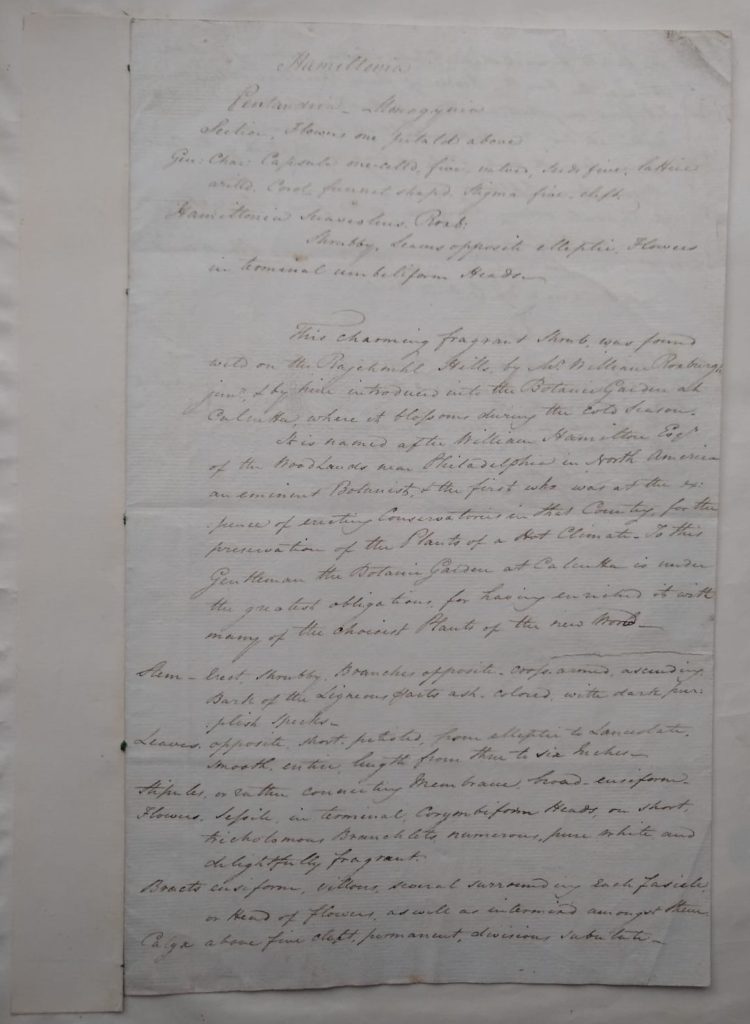 Hamiltonia
Pentandria - Monogynia
Section, Flowers one petald above
Gen: Char: Capsule one-celld, five, valved, Seeds five, lattice
arilld, Corol, funnel shap'd, Stigma five, cleft.
Hamiltonia Suaveolens, Roxb:
Shrubby, Leaves opposite elliptic, Flowers
in terminal umbelliform Heads -
This charming fragrant Shrub, was found
wild on the Rajehmhl Hills, by Mr. William Roxburgh
junr. & by him introduced into the Botanic Garden at
Calcutta, where it blossoms during the cold Season.
It is named after William Hamilton Esqr
of the Woodlands near Philadelphia in North America
an eminent Botanist, & the first who was at the ex:
:pence of erecting Conservatories in that Country, for the
preservation of the Plants of a Hot Climate - To this
Gentleman the Botanic Garden at Calcutta is under
the greatest obligations, for having enriched it with
many of the choicest Plants of the new World -
Stem - Erect, Shrubby, Branches opposite - cross armed, ascending
Bark of the Ligneous parts ash-colored, with dark pur:
:plish Specks -
Leaves, opposite, short-petioled, from elliptic to Lanceolate,
smooth, entire, length from three to six Inches -
Stipules, or rather connecting Membrane, broad-ensiform -
Flowers, Sessile, in terminal, Corymbiform Heads, on short,
trichotomous Branchlets, numerous, pure white and
delightfully fragrant.
Bracts ensiform, villous, several surrounding each fasicle,
or Head of flowers, as well as intermixd amongst them
Calyx above five cleft, permanent, divisions subulate -